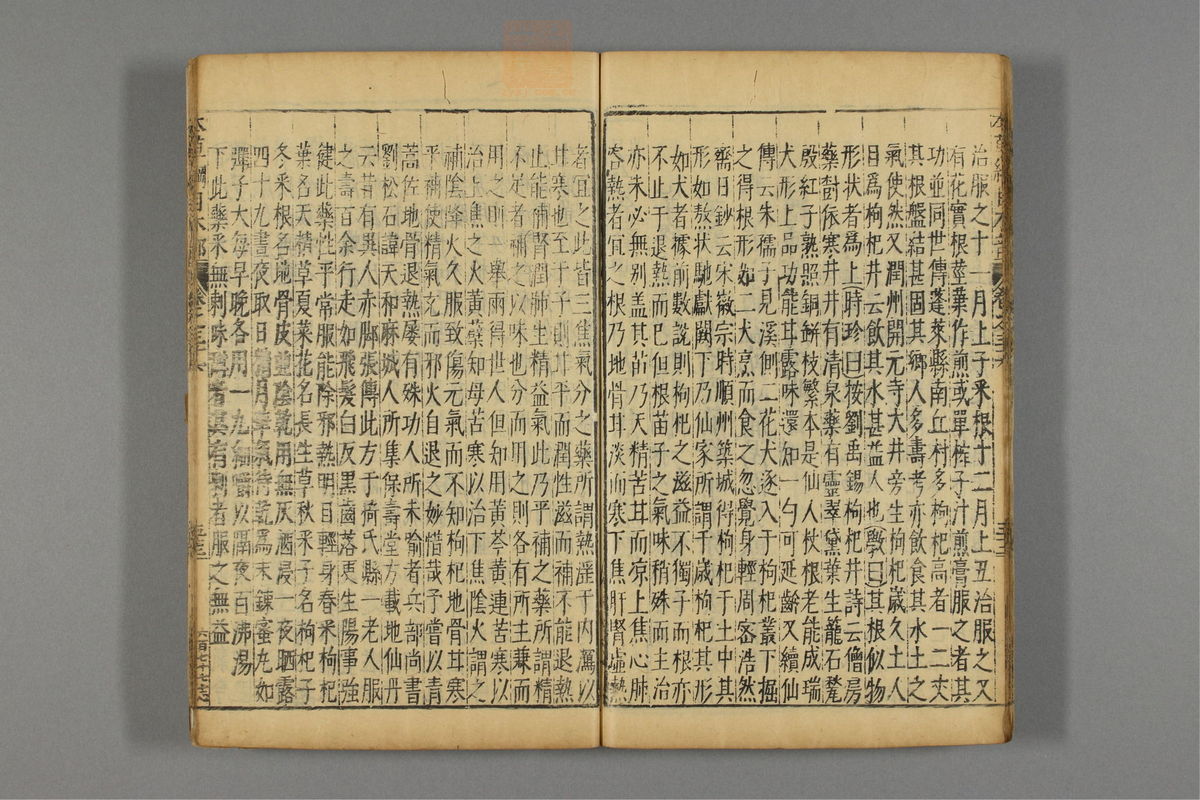 治服之十一月上子采根十二月上丑治服之又
有花實根莖葉作煎或單榨子汁煎膏服之者其
功並同世傳蓬萊縣南丘村多枸杞高者一二丈
其根盤結甚固其鄉人多壽考亦飲食其水土之
氣使然又潤州開元寺大井旁生枸杞歲久土人
目爲枸杞井云飲其水甚益人也斅曰其根似物
形狀者爲上時珍曰按劉禹錫枸杞井詩云僧房
藥對依寒井井有清泉藥有靈翠黛葉生籠石甃
殷紅子熟照銅缾枝繁本是仙人杖根老能成瑞
犬形上品功能甘露味還知一勺可延齡又續仙
傳云朱孺子見溪側二花犬逐入于枸杞叢下掘
之得根形如二犬烹而食之忽覺身輕周密浩然
齋日鈔云宋徽宗時順州築城得枸杞于土中其
形如獒狀馳獻闕下乃仙家所謂千歲枸杞其形
如犬者據前數說則枸杞之滋益不獨子而根亦
不止于退熱而已但根苗子之氣味稍殊而主治
亦未必無別蓋其苗乃天精苦甘而凉上焦心肺
客熱者宜之根乃地骨甘淡而寒下焦肝腎虛熱
者宜之此皆三焦氣分之藥所謂熱淫于內瀉以
甘寒也至于子則甘平而潤性滋而補不能退熱
止能補腎潤肺生精益氣此乃平補之藥所謂精
不足者補之以味也分而用之則各有所主兼而
用之則一舉兩得世人但知用黃芩黃連苦寒以
治上焦之火黃蘗知母苦寒以治下焦陰火謂之
補陰降火久服致傷元氣而不知枸杞地骨甘寒
平補使精氣充而邪火自退之妙惜哉予嘗以青
蒿佐地骨退熱屢有殊功人所未喻者兵部尚書
劉松石諱天和麻城人所集保壽堂方載地仙丹
云昔有異人赤腳張傳此方于猗氏縣一老人服
之壽百余行走如飛髮白反黑齒落更生陽事強
健此藥性平常服能除邪熱明目輕身春采枸杞
葉名天精草夏采花名長生草秋采子名枸杞子
冬采根名地骨皮並陰乾用無灰酒浸一夜晒露
四十九晝夜取日精月華氣待乾爲末鍊蜜丸如
彈子大每早晚各用一丸細嚼以隔夜百沸湯
下此藥采無刺味甜者其有刺者服之無益